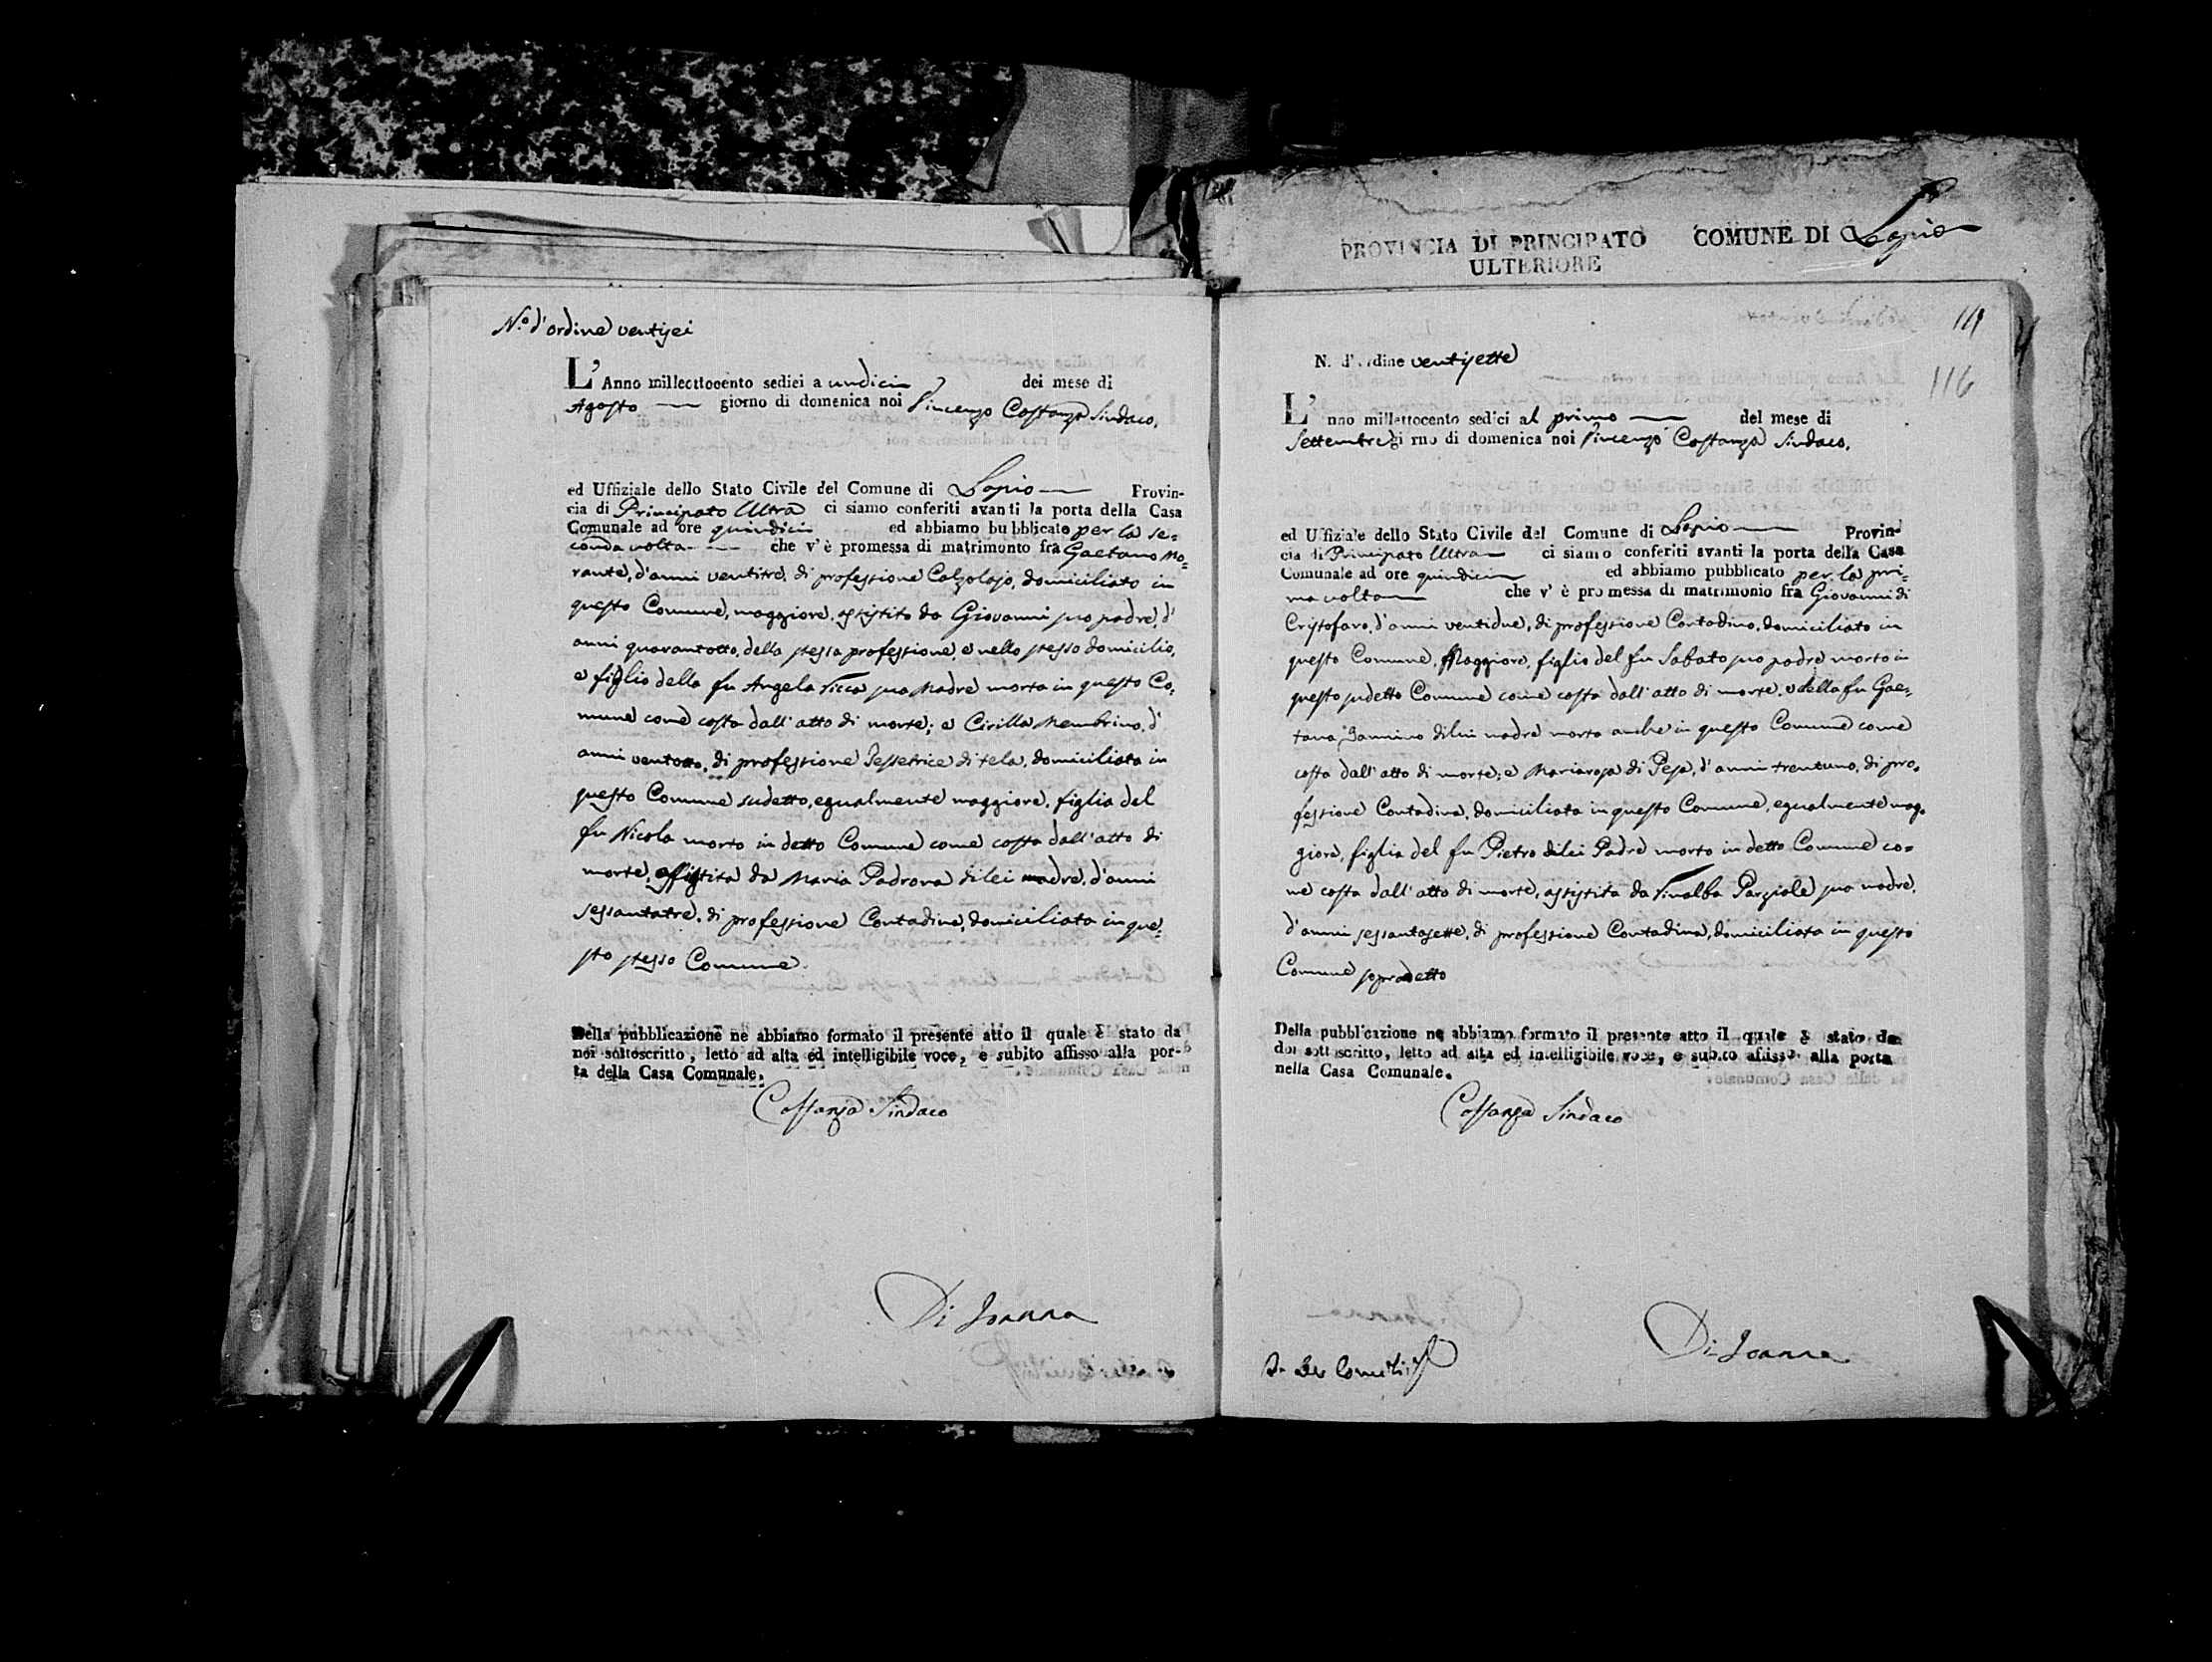 N.o d'ordine ventisei
L'Anno milleottocento sediei a undici dei mese di
Agosto giorno di domenica noi Vincenzo Costanza Sindaco,
ed Uffiziale dello Stato Civile del Comune di Lapio Provin-
cia di Principato Ultra ci siamo conferiti avanti la porta della Casa
Comunale ad ore quindici ed abbiamo bubblicato per la se=
conda volta che v'è promessa di matrimonto fra Gaetano Mo=
rante, d'anni ventitre, di professione Calzolajo, domiciliato in
questo Comune, maggiore, assistito da Giovanni suo padre, d'
anni quarantotto, della stessa professione, e nello stesso domicilio,
e figlio della fu Angela Ticca sua Madre morta in questo Co=
mune come costa dall'atto di morte; e Cirilla Membrino, d'
anni ventotto, di professione Tessetrice di tela, domiciliata in
questo Comune sudetto, egualmente maggiore, figlia del
fu Nicola morto in detto Comune come costa dall'atto di
morte, assistita da Maria Padrova di lei madre, d'anni
sessantatre, di professione Contadina, domiciliata in que=
sto stesso Comune.
Della pubblicazione ne abbiamo formato il presente atto il quale è stato da
noi sottoscritto, letto ad alta ed intelligibile voce, e subito affisso alla por-
ta della Casa Comunale.
Costanza Sindaco
Di Joanna
PROVINCIA DI PRINCIPATO COMUNE DI Lapio
ULTERIORE
116
N. d'ordine ventisette
L'nno millettocento sedici al primo del mese di
Settembre girno di domenica noi Vincenzo Costanza Sindaco,
ed Uffiziale dello Stato Civile del Comune di Lapio Provin-
cia di Principato Ultra ci siamo conferiti avanti la porta della Casa
Comunale ad ore quindici ed abbiamo pubblicato per la pri=
ma volta che v'è promessa di matrimonio fra Giovanni di
Cristofaro, d'anni ventidue, di professione Contadino, domiciliato in
questo Comune, Maggiore, figlio del fu Sabato suo padre morto in
questo sudetto Comune come costa dall'atto di morte, e della fu Gae=
tana Iannino di lui madre morta anche in questo Comune come
costa dall'atto di morte; e Mariarosa di Pesa, d'anni trentuno, di pro=
fessione Contadina, domiciliata in questo Comune, egualmente mag=
giore, figlia del fu Pietro di lei Padre morto in detto Comune co=
me costa dall'atto di morte, assistita da Finalba Parziale sua madre,
d'anni sessantasette, di professione Contadina, domiciliata in questo
Comune sopradetto
Della pubblicazione ne abbiamo formato il presente atto il quale è stato da
doi sottoscritto, letto ad alta ed intelligibile voce, e subito affisso alla porta
nella Casa Comunale.
Costanza Sindaco
Di Joanna